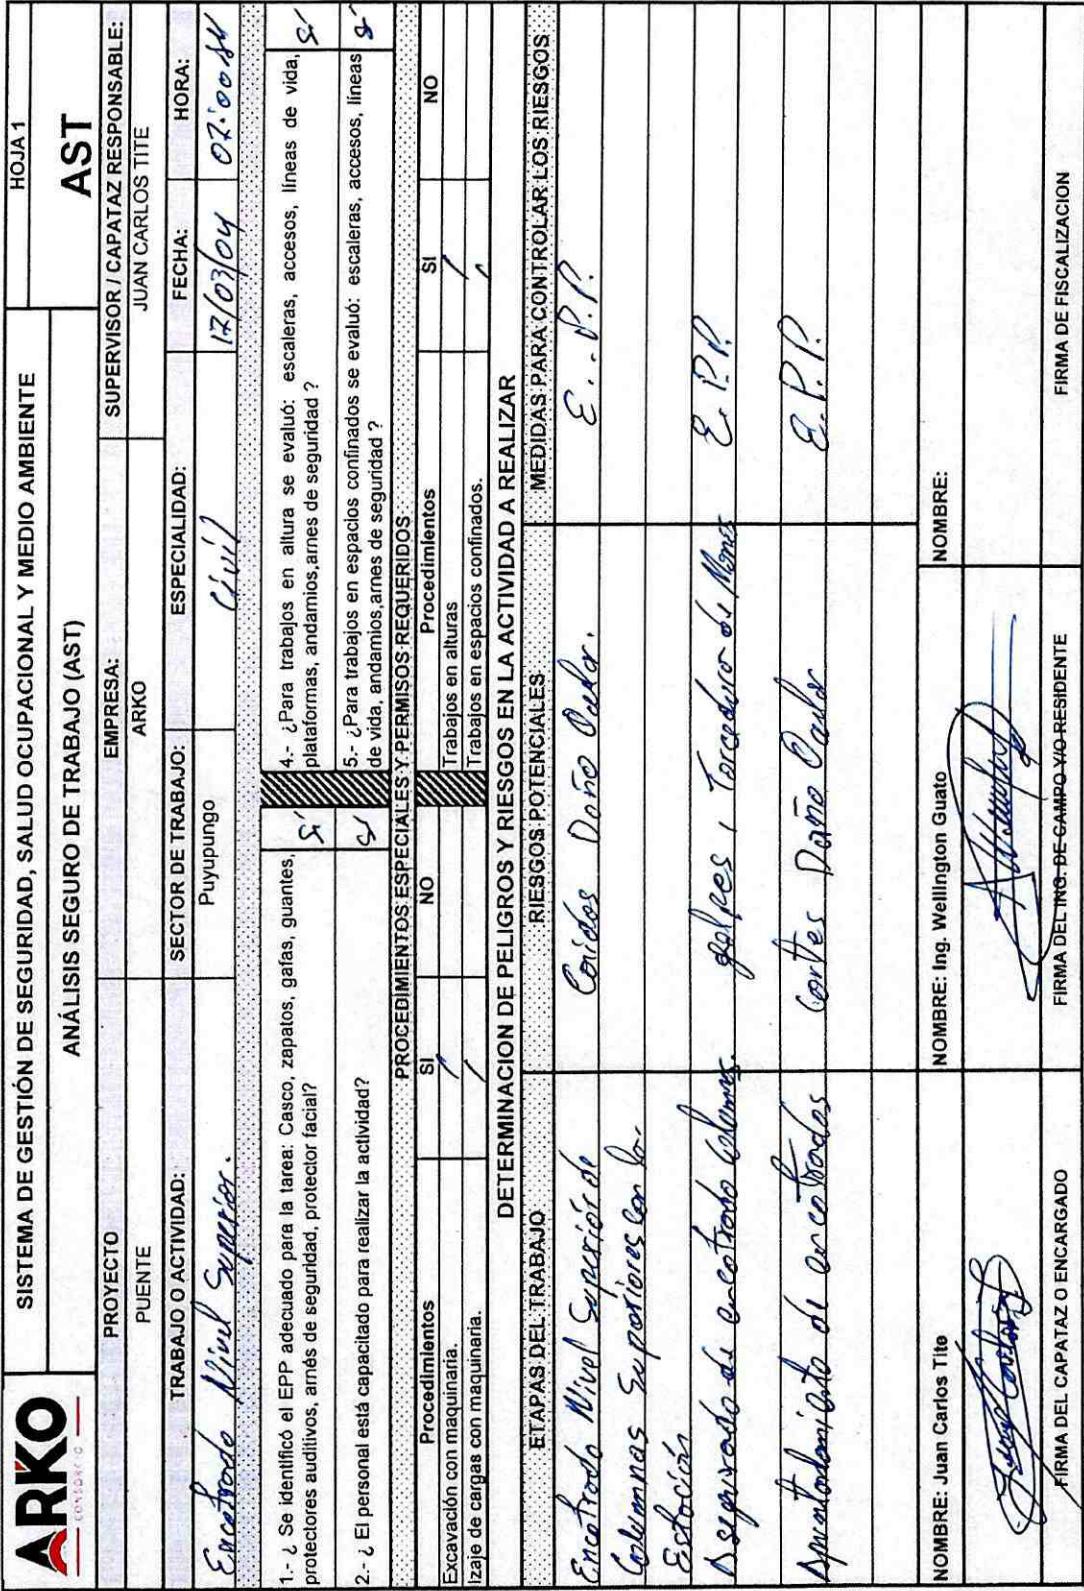 ARKO
CONSORCIO
SISTEMA DE GESTIÓN DE SEGURIDAD, SALUD OCUPACIONAL Y MEDIO AMBIENTE
HOJA 1
ANÁLISIS SEGURO DE TRABAJO (AST)
AST
PROYECTO
EMPRESA:
SUPERVISOR / CAPATAZ RESPONSABLE:
PUENTE
ARKO
JUAN CARLOS TITE
TRABAJO O ACTIVIDAD:
SECTOR DE TRABAJO:
ESPECIALIDAD:
FECHA:
HORA:
Encofrado Nivel Superior.
Puyupungo
Civil
17/03/04
07:00
1.- ¿ Se identificó el EPP adecuado para la tarea: Casco, zapatos, gafas, guantes,
protectores auditivos, arnés de seguridad, protector facial?
Sí
4.- ¿Para trabajos en altura se evaluó: escaleras, accesos, líneas de vida,
plataformas, andamios,arnes de seguridad ?
Sí
2.- ¿ El personal está capacitado para realizar la actividad?
Sí
5.- ¿Para trabajos en espacios confinados se evaluó: escaleras, accesos, líneas
de vida, andamios,arnes de seguridad ?
Sí
PROCEDIMIENTOS ESPECIALES Y PERMISOS REQUERIDOS
Procedimientos
SI
NO
Procedimientos
SI
NO
Excavación con maquinaria.
/
Trabajos en alturas
/
Izaje de cargas con maquinaria.
/
Trabajos en espacios confinados.
/
DETERMINACION DE PELIGROS Y RIESGOS EN LA ACTIVIDAD A REALIZAR
ETAPAS DEL TRABAJO
RIESGOS POTENCIALES
MEDIDAS PARA CONTROLAR LOS RIESGOS
Encofrado Nivel Superior de
Caidas Daño
E. P.P.
Columnas Superiores con la.
Estación
Asegurado de encofrado Columnas.
golpes, Torcedura de Manos
E. P.P.
Apuntalamiento de encofrados
Cortes Daño
E. P.P.
NOMBRE: Juan Carlos Tite
NOMBRE: Ing. Wellington Guato
NOMBRE:
FIRMA DEL CAPATAZ O ENCARGADO
FIRMA DEL ING. DE CAMPO Y/O RESIDENTE
FIRMA DE FISCALIZACION